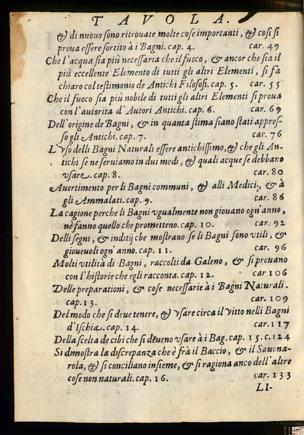 TAVOLA.
& di nuouo sono ritrouate molte cose importanti, & cosi si
proua essere sortito à i Bagni. cap. 4. car. 49
Che l'acqua sia più necessaria che il fuoco, & ancor che sia il
più eccellente Elemento di tutti gli altri Elementi, si fà
chiaro col testimonio de Antichi Filosofi. cap. 5. car. 55
Che il fuoco sia più nobile di tutti gli altri Elementi si proua
con l'autorita d'Autori Antichi. cap. 6. car. 69
Dell'origine de Bagni, & in quanta stima siano stati appres-
so gli Antichi. cap. 7. car. 76
L'vso delli Bagni Naturali essere antichissimo, & che gli An-
tichi se ne seruiuano in dui modi, & quali acque se debbaro
vsare. cap. 8. car. 80
Auertimento per li Bagni communi, & alli Medici, & à
gli Ammalati. cap. 9. car. 86
La cagione perche li Bagni vgualmente non giouano ogn'anno,
ne fanno quello che promettono. cap. 10. car. 92
Delli segni, & inditij che mostrano se li Bagni sono vtili, &
gioueuoli ogn'anno. cap. 11. car. 96
Molti vtilità di Bagni, raccolti da Galeno, & si prouano
con l'historie che egli racconta. cap. 12. car 106
Delle preparationi, & cose necessarie à i Bagni Naturali.
cap. 13. car. 109
Del modo che si deue tenere, & vsare circa il vitto nelli Bagni
d'Ischia. cap. 14. car. 117
Della scelta de cibi che si deueno vsare à i Bag. cap. 15. c. 124
Si dimostra la discrepanza che è frà il Baccio, & il Sauona-
rola, & si conciliano insieme, & si ragiona anco dell'altre
cose non naturali. cap. 16. car. 133
LI-